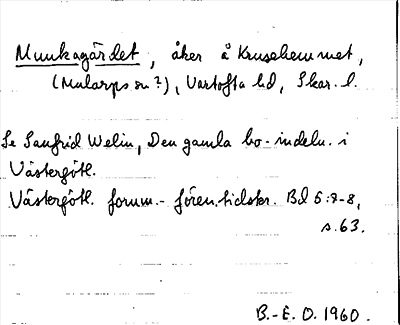 Munkagärdet, åker å Krusehemmet,
(Mularps sn?), Vartofta hd, Skar. l.
Se Sanfrid Welin, Den gamla bo-indeln. i
Västergötl.
Västergötl. fornm.-fören. tidskr. Bd 5:7-8,
s. 63.
B.-E. O. 1960.